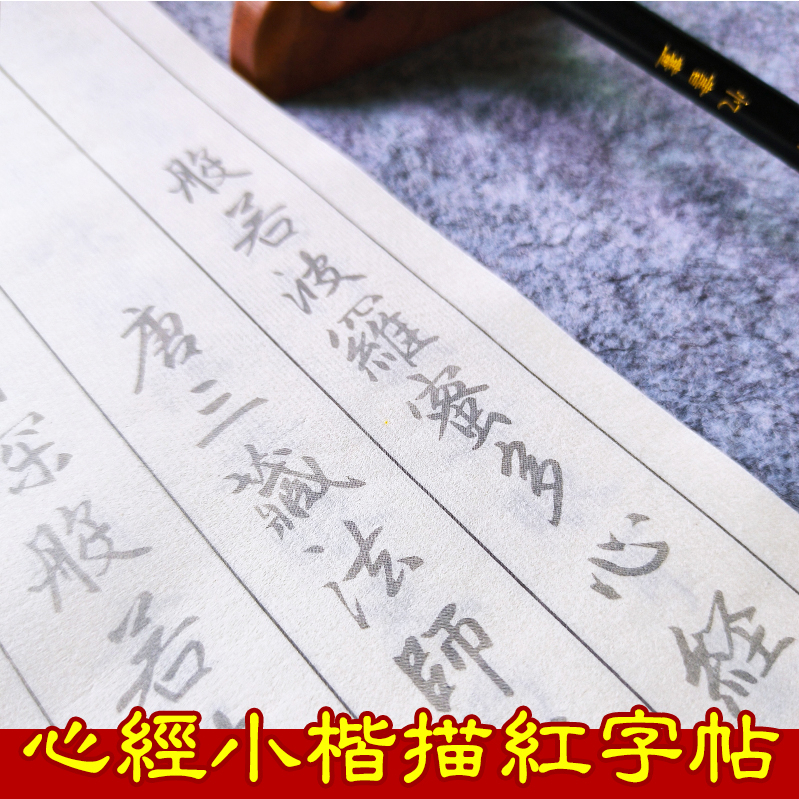 般若波羅蜜多心経
唐三藏法師
深般若
心經小楷描紅字帖